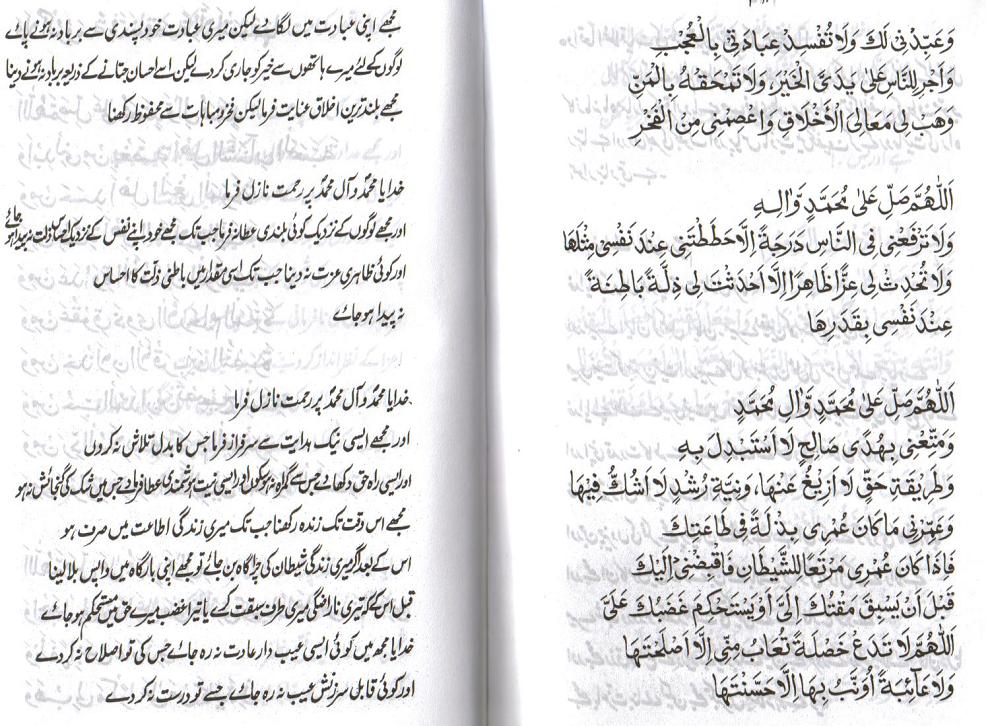 وَعَبِّدْنِىْ لَكَ وَلَا تُفْسِدْ عِبَادَتِىْ بِالْعُجْبِ
وَاَجْرِ لِلنَّاسِ عَلٰى يَدَىَّ الْخَيْرَ، وَلَا تَمْحَقْهُ بِالْمَنِّ
وَهَبْ لِى مَعَالِىَ الْاَخْلَاقِ وَاعْصِمْنِى مِنَ الْفَخْرِ
اَللّٰهُمَّ صَلِّ عَلٰى مُحَمَّدٍ وَّاٰلِهٖ
وَلَا تَرْفَعْنِى فِى النَّاسِ دَرَجَةً اِلَّا حَطَطْتَنِى عِنْدَ نَفْسِى مِثْلَهَا
وَلَا تُحْدِثْ لِى عِزًّا ظَاهِرًا اِلَّا اَحْدَثْتَ لِى ذِلَّةً بَاطِنَةً
عِنْدَ نَفْسِى بِقَدَرِهَا
اَللّٰهُمَّ صَلِّ عَلٰى مُحَمَّدٍ وَّاٰلِ مُحَمَّدٍ
وَمَتِّعْنِى بِهُدًى صَالِحٍ لَا اَسْتَبْدِلُ بِهٖ
وَطَرِيْقَةِ حَقٍّ لَا اَزِيْغُ عَنْهَا، وَنِيَّةِ رُشْدٍ لَا اَشُكُّ فِيْهَا
وَعَمِّرْنِى مَا كَانَ عُمْرِى بِذْلَةً فِى طَاعَتِكَ
فَاِذَا كَانَ عُمْرِى مَرْتَعًا لِلشَّيْطَانِ فَاقْبِضْنِىْ اِلَيْكَ
قَبْلَ اَنْ يَسْبِقَ مَقْتُكَ اِلَىَّ اَوْ يَسْتَحْكِمَ غَضَبُكَ عَلَىَّ
اَللّٰهُمَّ لَا تَدَعْ خَصْلَةً تُعَابُ مِنِّى اِلَّا اَصْلَحْتَهَا
وَلَا عَآئِبَةً اُوَنَّبُ بِهَا اِلَّا حَسَّنْتَهَا
مجھے اپنی عبادت میں لگائے لیکن میری عبادت خود پسندی سے برباد نہ ہونے پائے
لوگوں کے لئے میرے ہاتھوں سے خیر کو جاری کر دے لیکن اسے احسان جتانے کے ذریعہ برباد نہ ہونے دینا
مجھے بلند ترین اخلاق عنایت فرما لیکن فخر و مباہات سے محفوظ رکھنا
خدایا محمدؐ و آل محمدؐ پر رحمت نازل فرما
اور مجھے لوگوں کے نزدیک کوئی بلندی عطا نہ فرما جب تک مجھے خود اپنے نفس کے نزدیک ذلت نہ پیدا ہو جائے
اور کوئی ظاہری عزت نہ دینا جب تک اسی مقدار میں باطنی ذلت کا احساس
نہ پیدا ہو جائے
خدایا محمدؐ و آل محمدؐ پر رحمت نازل فرما
اور مجھے ایسی نیک ہدایت سے سرفراز فرما جس کا بدل تلاش نہ کروں
اور ایسی راہ حق دکھا دے جس سے گمراہ نہ ہو سکوں اور ایسی نیت ہوشمندی عطا فرما دے جس میں شک کی گنجائش نہ ہو
مجھے اس وقت تک زندہ رکھنا جب تک میری زندگی اطاعت میں صرف ہو
اس کے بعد اگر میری زندگی شیطان کی چراگاہ بن جائے تو مجھے اپنی بارگاہ میں واپس بلا لینا
قبل اس کے کہ تیری ناراضگی میری طرف سبقت کرے یا تیرا غضب میرے حق میں مستحکم ہو جائے
خدایا مجھ میں کوئی ایسی عیب دار عادت نہ رہ جائے جس کی تو اصلاح نہ کر دے
اور کوئی قابل سرزنش عیب نہ رہ جائے جسے تو درست نہ کر دے